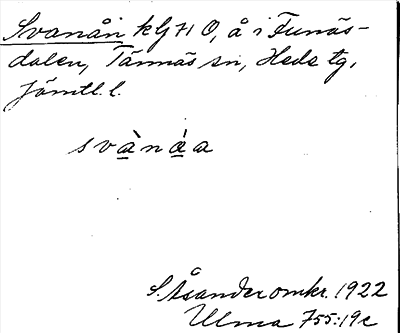 Svanån kG 71 O, å i Funäs-
dalen, Tännäs sn, Hede tg,
Jämtl. l.
svànáa
S. Åsander omkr. 1922
Ulma 755:19c